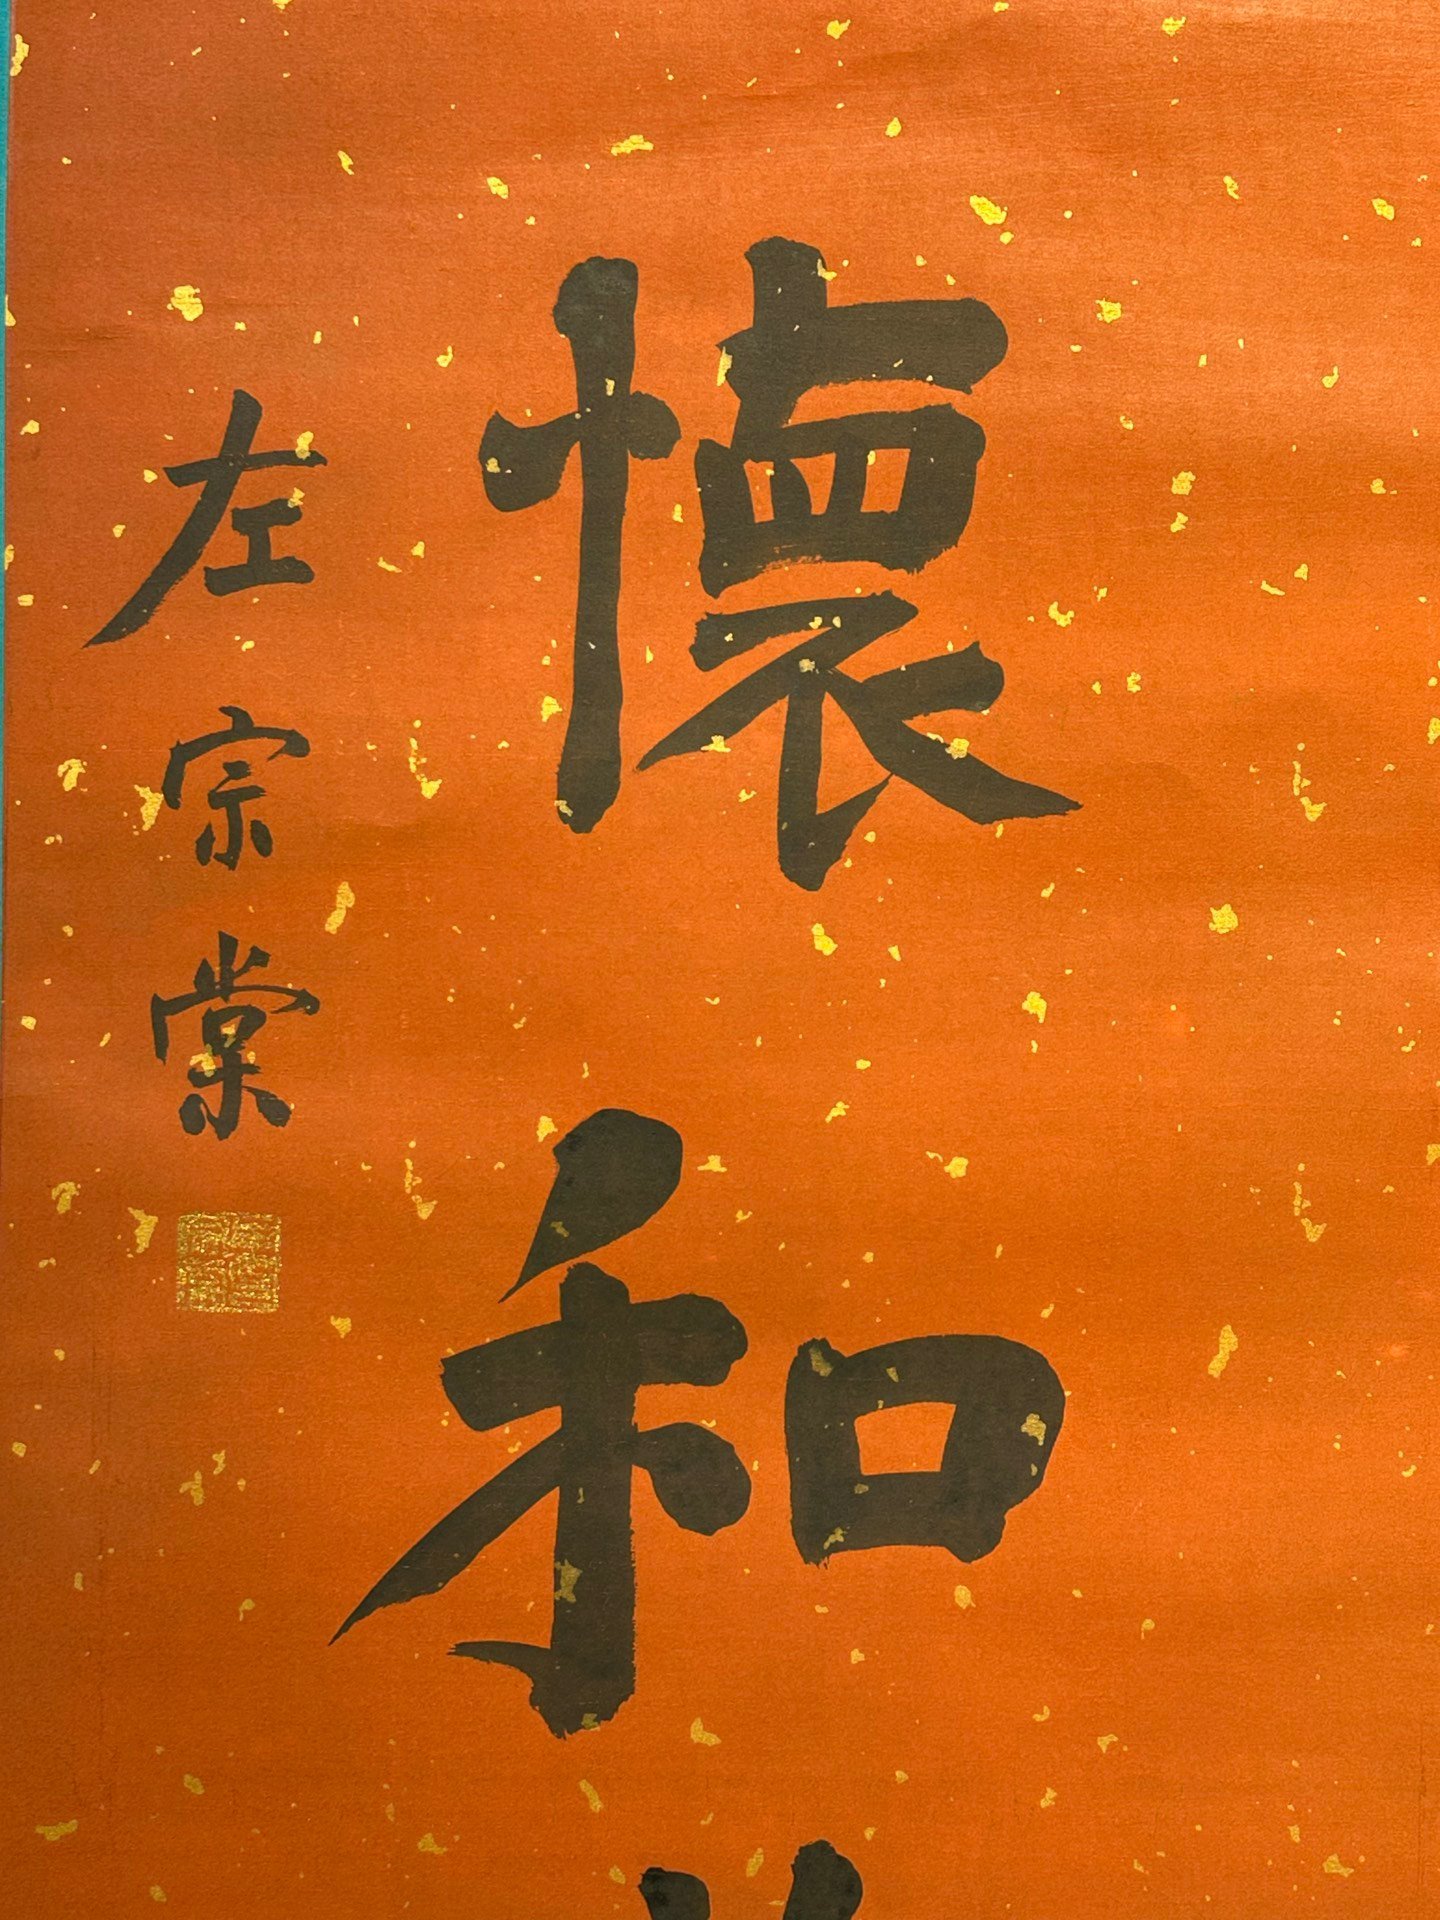 懷和
左宗棠